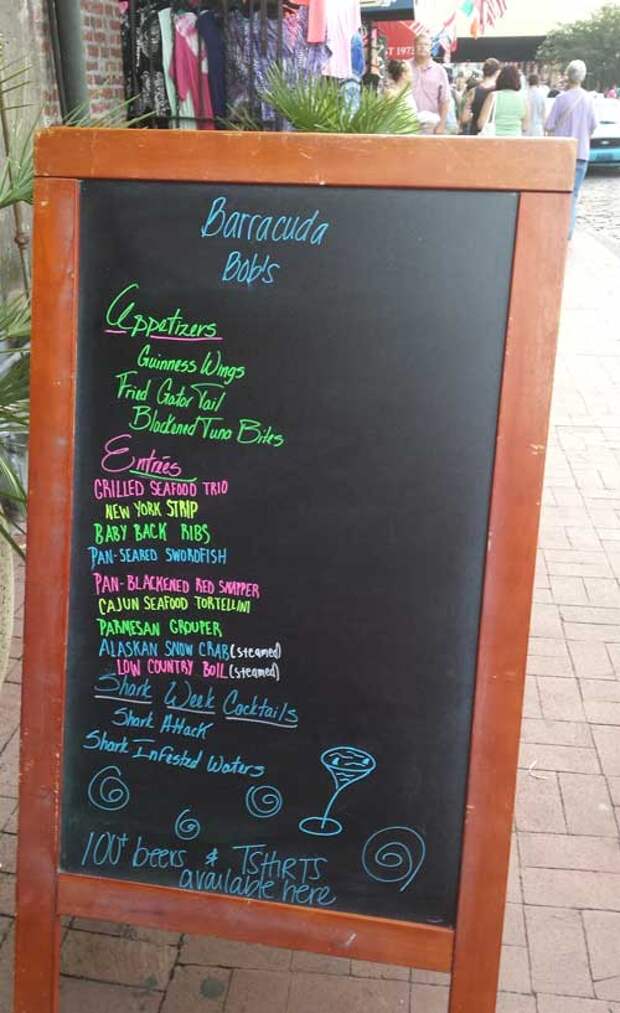 T 1973
Barracuda
Bob's
Appetizers
Guinness Wings
Fried Gator Tail
Blackened Tuna Bites
Entrées
GRILLED SEAFOOD TRIO
NEW YORK STRIP
BABY BACK RIBS
PAN-SEARED SWORDFISH
PAN-BLACKENED RED SNAPPER
CAJUN SEAFOOD TORTELLINI
PARMESAN GROUPER
ALASKAN SNOW CRAB (steamed)
LOW COUNTRY BOIL (steamed)
Shark Week Cocktails
Shark Attack
Shark Infested Waters
100+ beers & TSHIRTS
available here